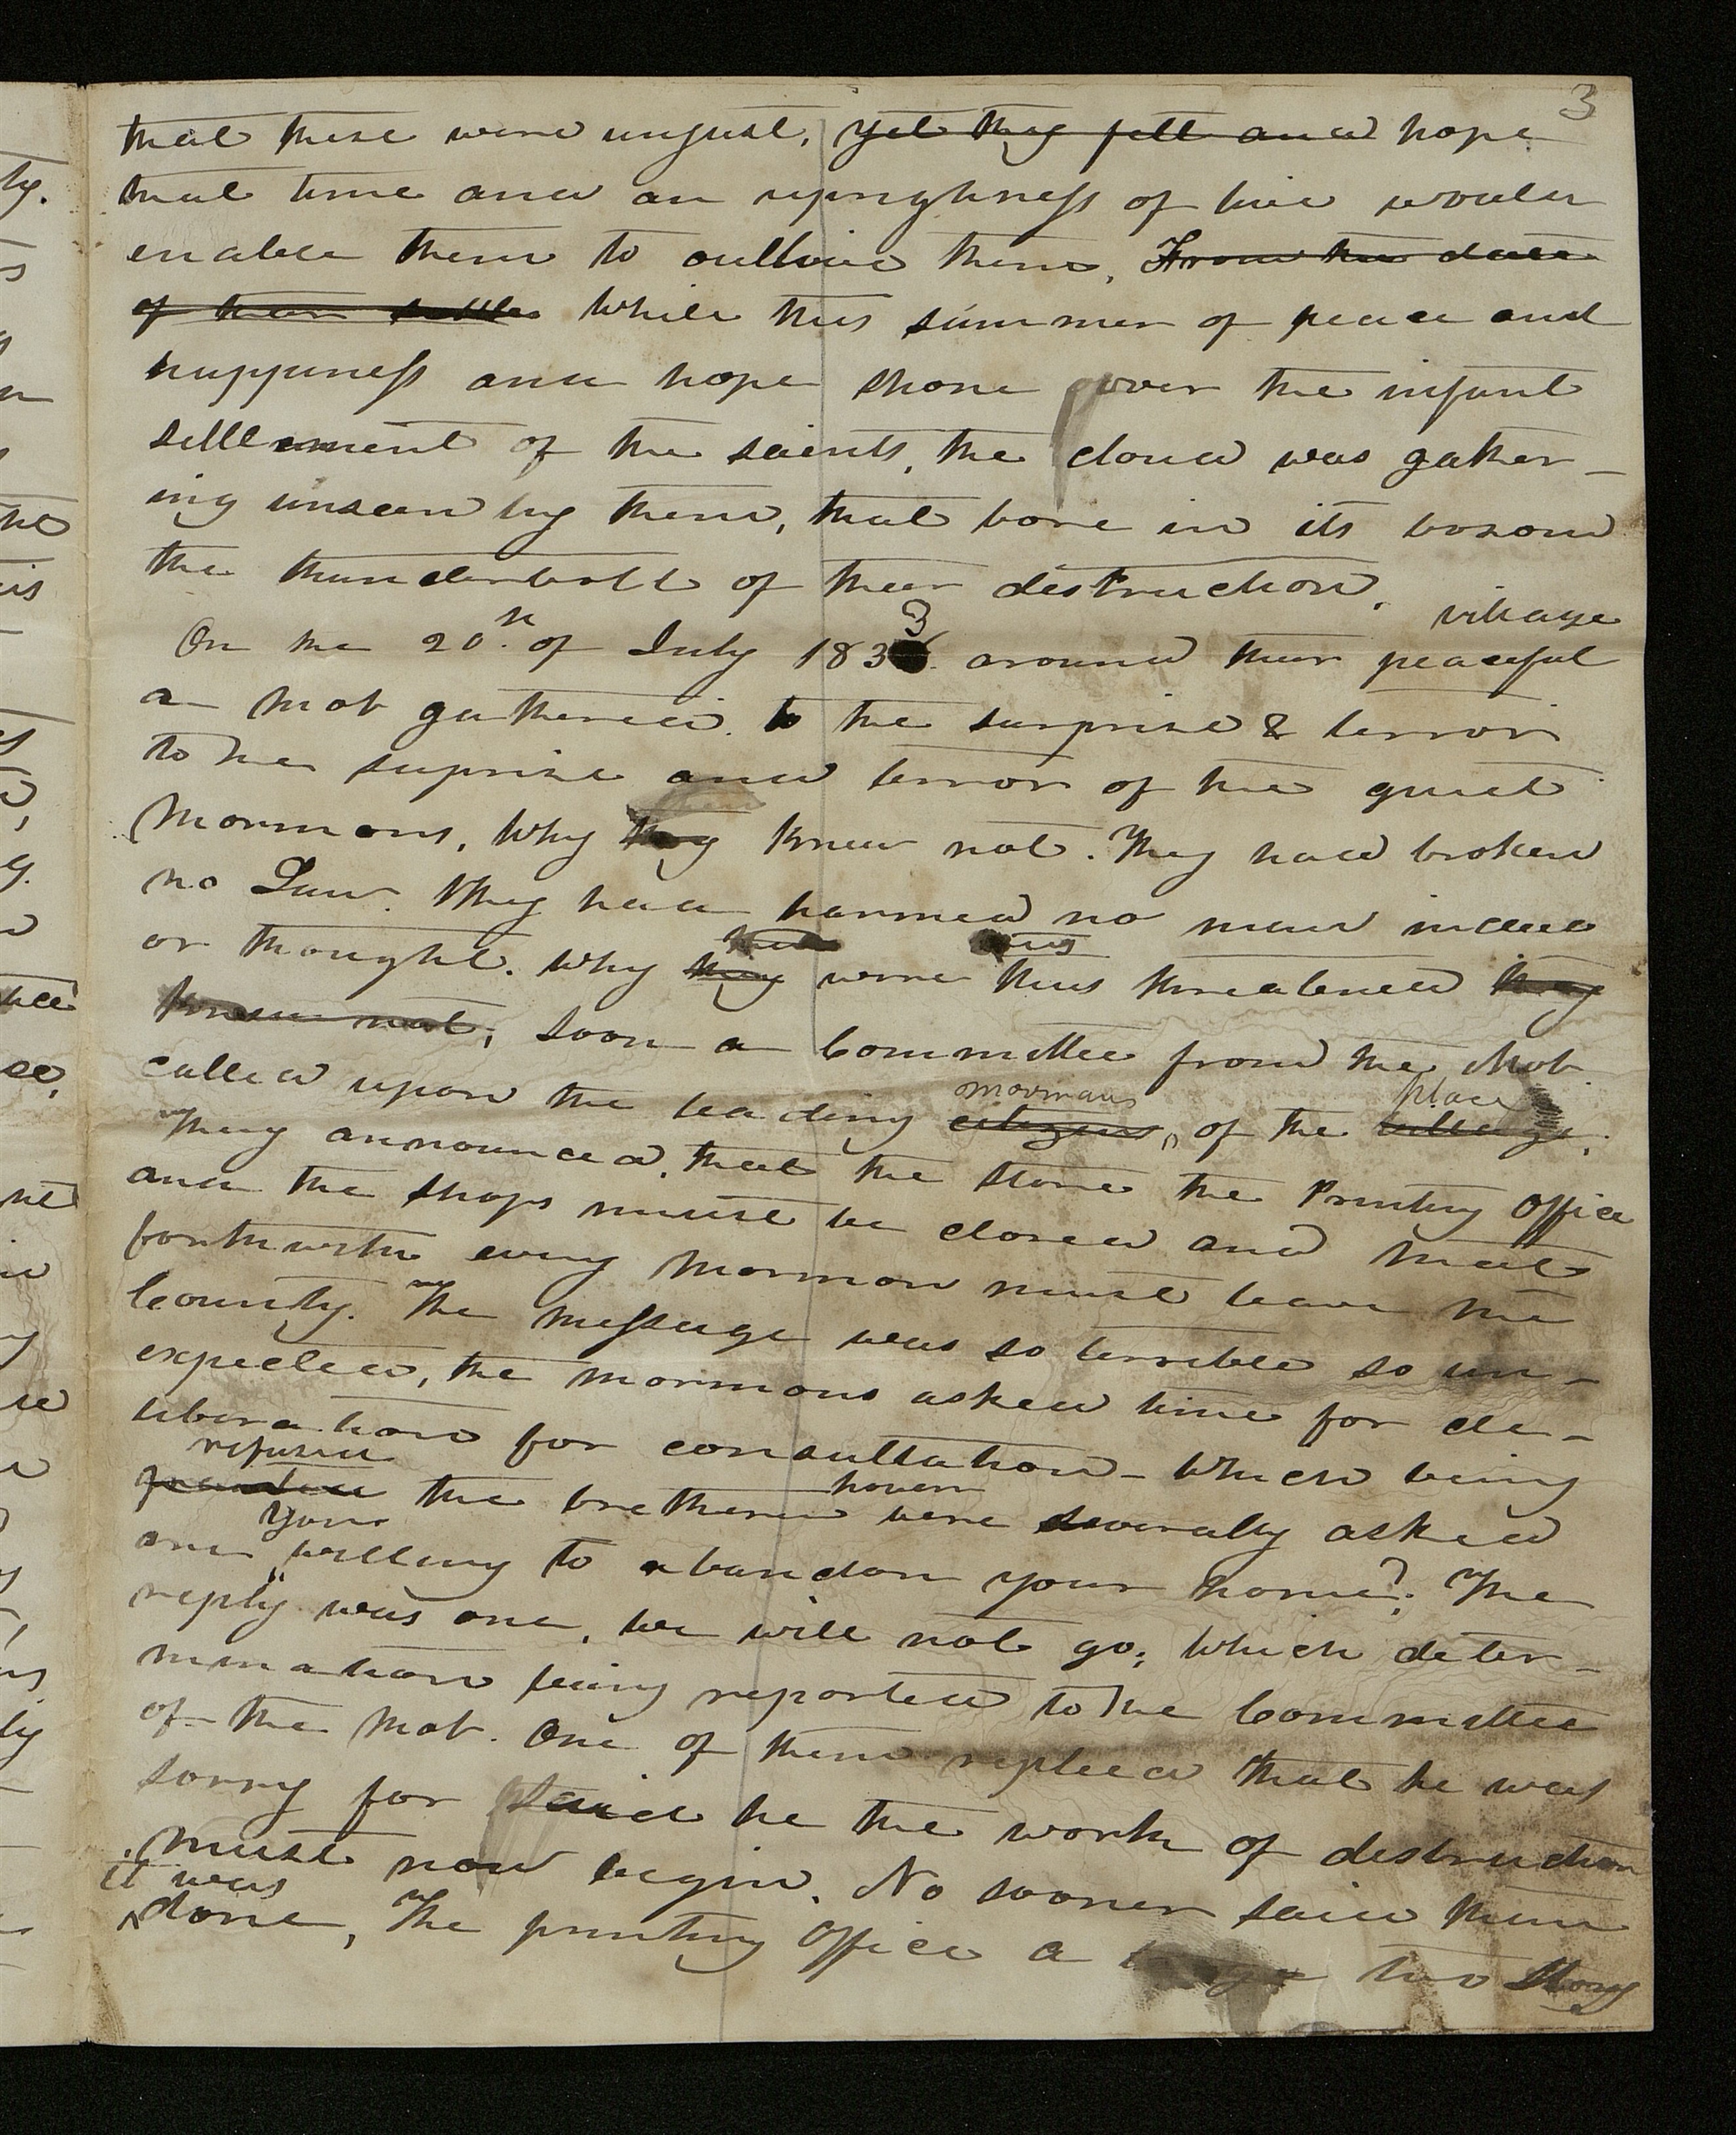 3
that these were unjust, yet they felt and hope
that time and an uprighness of live would
enable them to outlive them. From the date
of their settle While this summer of peace and
happiness and hope shone over the infant
settlement of the saints, the cloud was gather-
ing unseen by them, that bore in its bosom
the thunderbolt of their destruction.
village
On the 20th of July 1833 around their peaceful
a mob gathered. to the surprise & terror
to the suprise and terror of the quiet
Mormons, Why they knew not. They had broken
no Law. they had harmed no man in deed
or thought. Why they were thus threatened they
knew not; soon a Committee from the Mob
mormans place
called upon the leading citizens, of the village.
They announced, that the store the Printing Office
and the shops must be closed and that
forthwith every Mormon must leave the
County. The message was so terrible so un-
expected, the mormons asked time for de-
liberation for consultation - Which being
refused
granted the bretheren were severally asked
you
are willing to abandon your home? The
reply was one, we will not go; Which deter-
mination being reported to the Committee
of the Mob. One of them replied that he was
sorry for said he the work of destruction
must now begin. No sooner said than
it was
done, The printing Office a two story